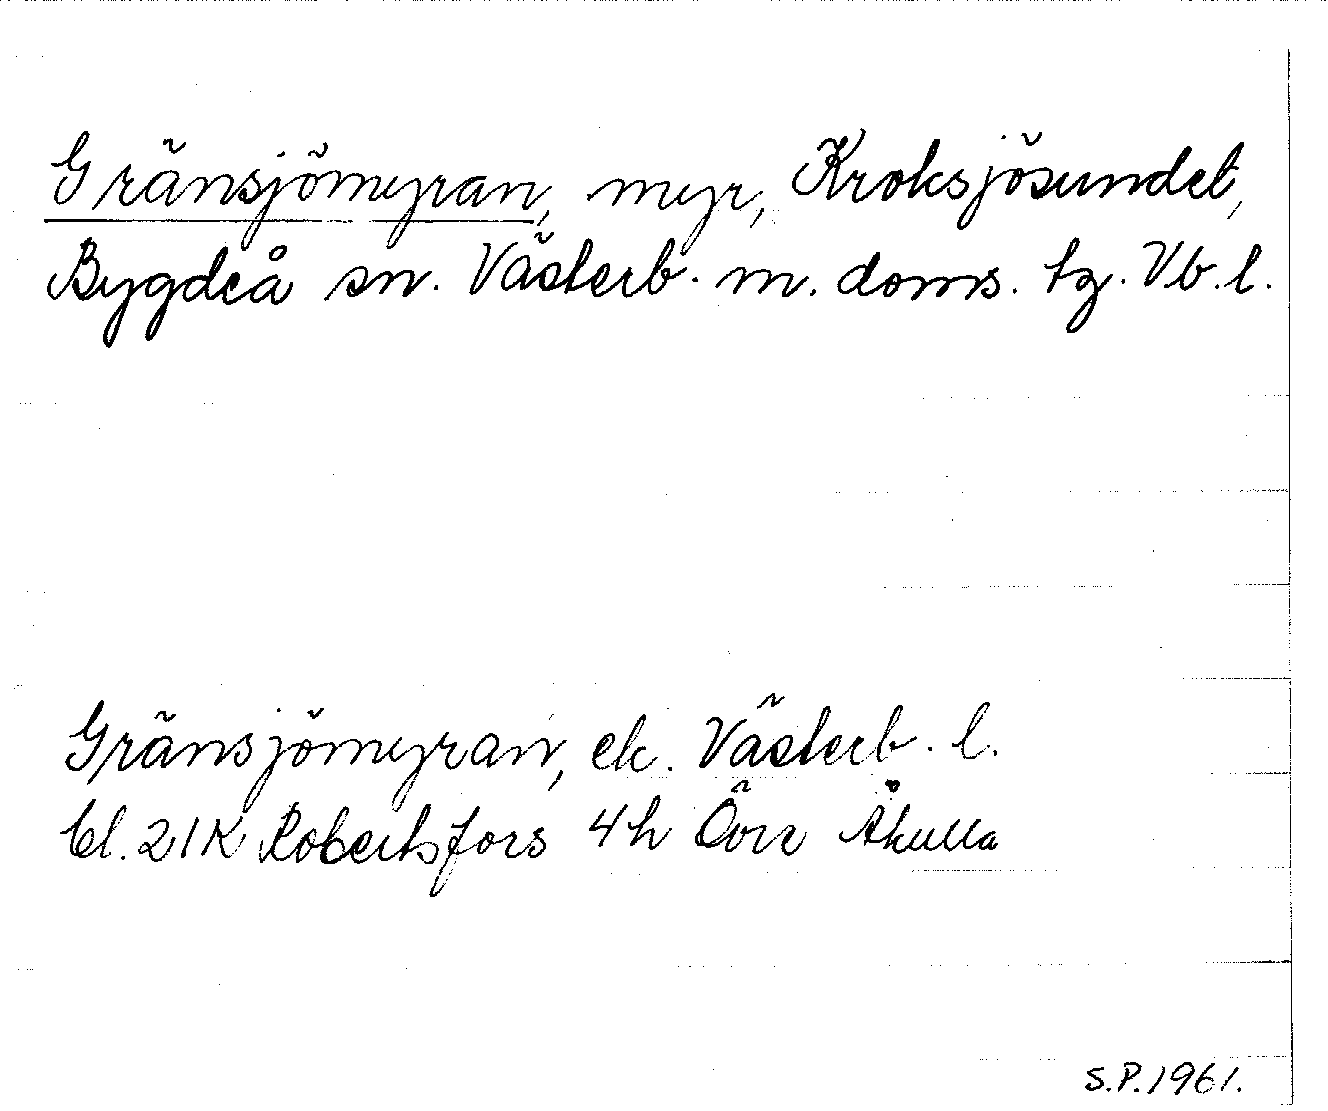 Gränsjömyran, myr, Kroksjösundet,
Bygdeå sn. Västerb. m. doms. tg. Vb. l.
Gränsjömyran, ek. Västerb. l.
bl. 21K Robertsfors 4h Övre Åkulla
S.P. 1961.